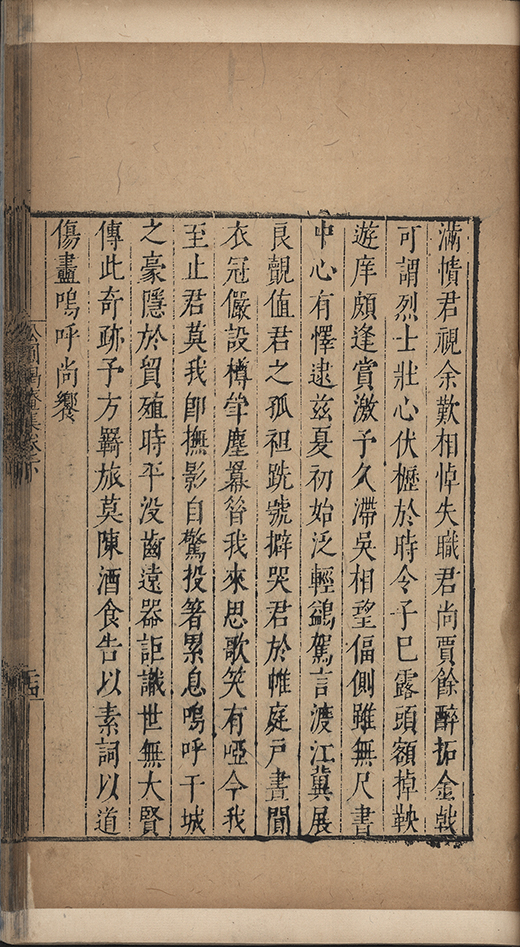 滿幘君視余歎相悼失職君尚賈餘醉拓金㦸
可謂烈士壯心伏櫪於時令子巳露頭額掉鞅
遊庠頗逢賞激予久滯吳相望偪側雖無尺書
中心有懌逮玆夏初始泛輕鷁駕言渡江冀展
良覿值君之孤袒跣號擗哭君於帷庭戸晝閴
衣冠儼設樽斝塵羃昝我來思歌笑有啞今我
至止君莫我卽撫影自驚投箸累息嗚呼干城
之豪隱於貿殖時平没齒遠器詎識世無大賢
傳此奇跡予方羇旅莫陳酒食告以素詞以道
傷盡嗚呼尚饗